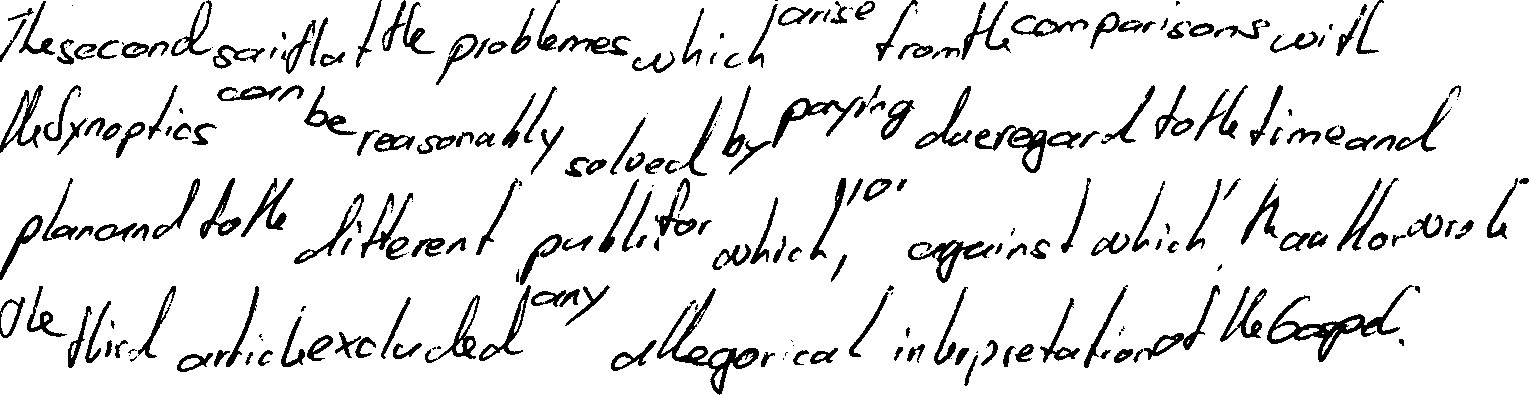 The second said that the problemes which arise from the comparisons with
the Synoptics can be reasonably solved by paying due regard to the time and
plan and to the different public for which, or against which the author wrote
the third article excluded any allegorical interpretation of the Gospel.